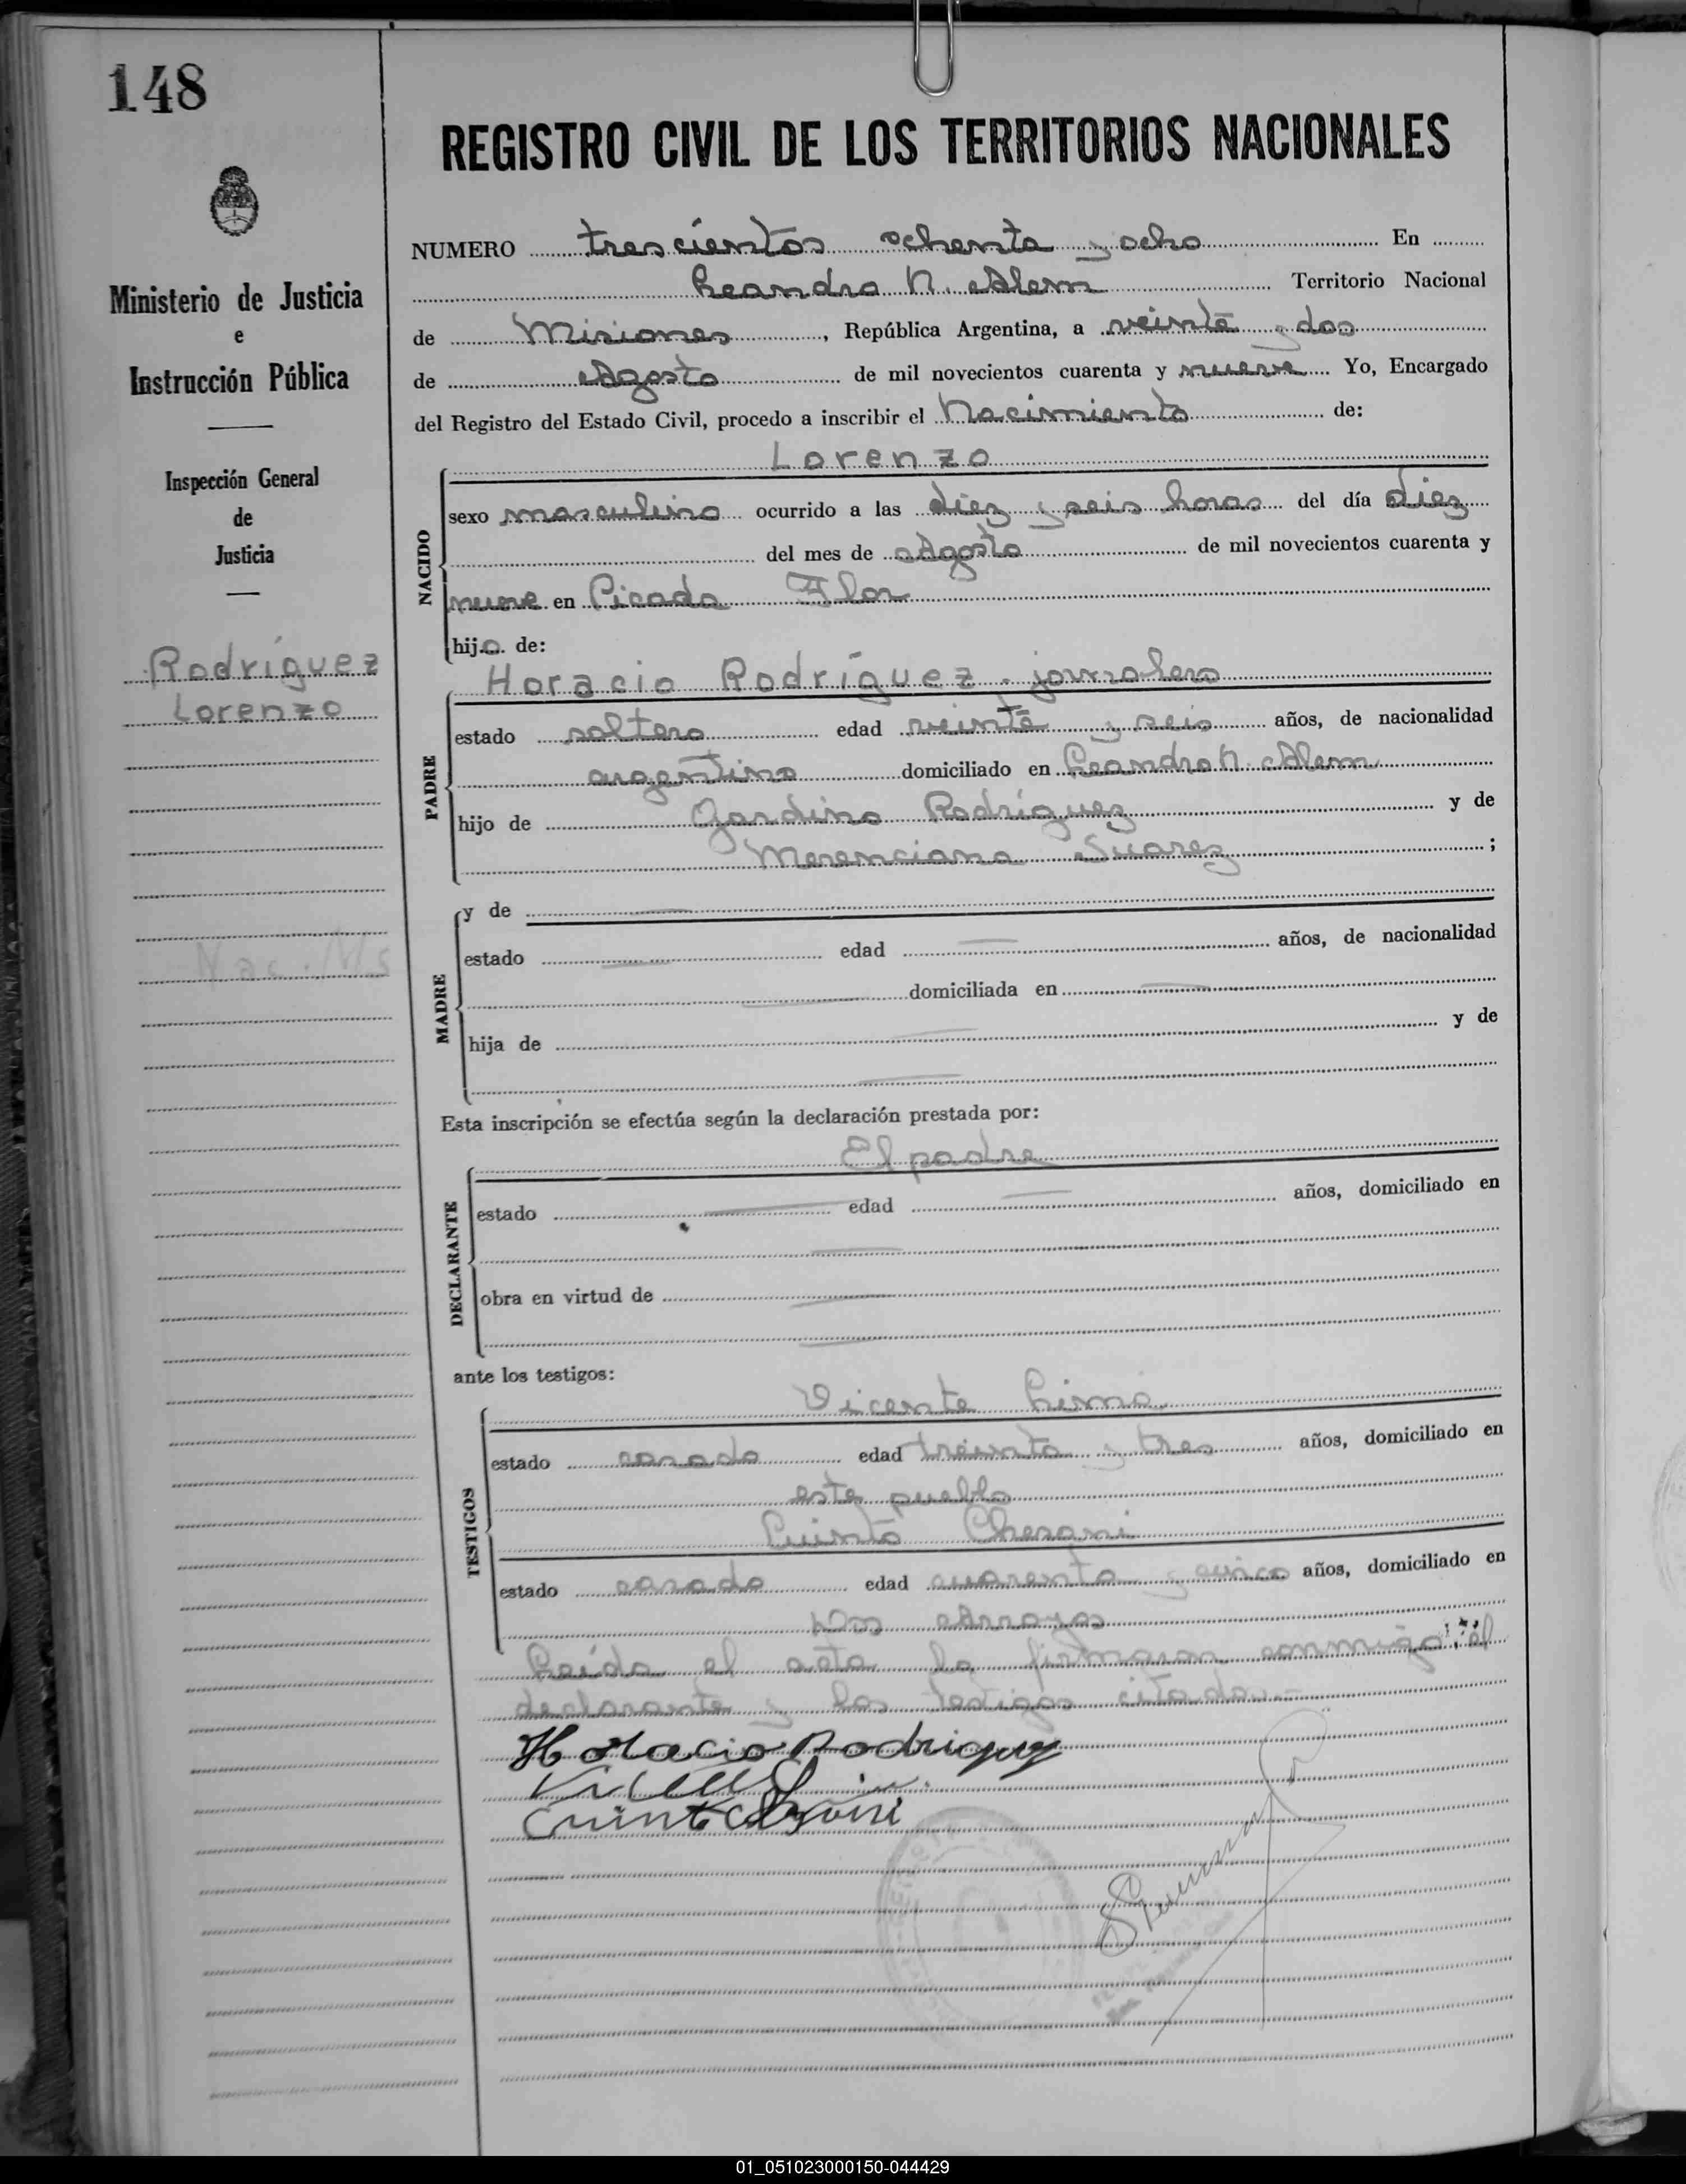 148
REGISTRO CIVIL DE LOS TERRITORIOS NACIONALES
Ministerio de Justicia
e
Instrucción Pública
Inspección General
de
Justicia
Rodríguez
Lorenzo
Nac. Ms
NUMERO trescientos ochenta y ocho En
Leandro N. Alem Territorio Nacional
de Misiones, República Argentina, a veinte y dos
de Agosto de mil novecientos cuarenta y nueve Yo, Encargado
del Registro del Estado Civil, procedo a inscribir el Nacimiento de:
Lorenzo
NACIDO
sexo masculino ocurrido a las diez y seis horas del día diez
del mes de Agosto de mil novecientos cuarenta y
nueve en Picada Flor
hijo de:
PADRE
Horacio Rodríguez. jornalero
estado soltero edad veinte y seis años, de nacionalidad
argentino domiciliado en Leandro N. Alem
hijo de Gardino Rodríguez y de
Merenciana Suarez ;
MADRE
y de
estado edad años, de nacionalidad
domiciliada en
hija de y de
Esta inscripción se efectúa según la declaración prestada por:
El padre
DECLARANTE
estado edad años, domiciliado en
obra en virtud de
ante los testigos:
TESTIGOS
Vicente Lima
estado casado edad treinta y tres años, domiciliado en
este pueblo
Cuinto
estado casado edad cuarenta y cinco años, domiciliado en
Dos Arroyos
Leída el acta la firmaron conmigo el
declarante y los testigos citados.-
Horacio Rodriguez
01_051023000150-044429